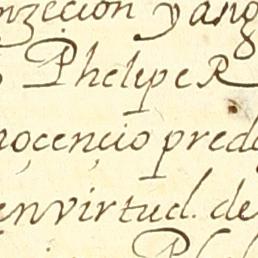 nzecion y ang
Phelipe R
noçençio pred
en virtud. de